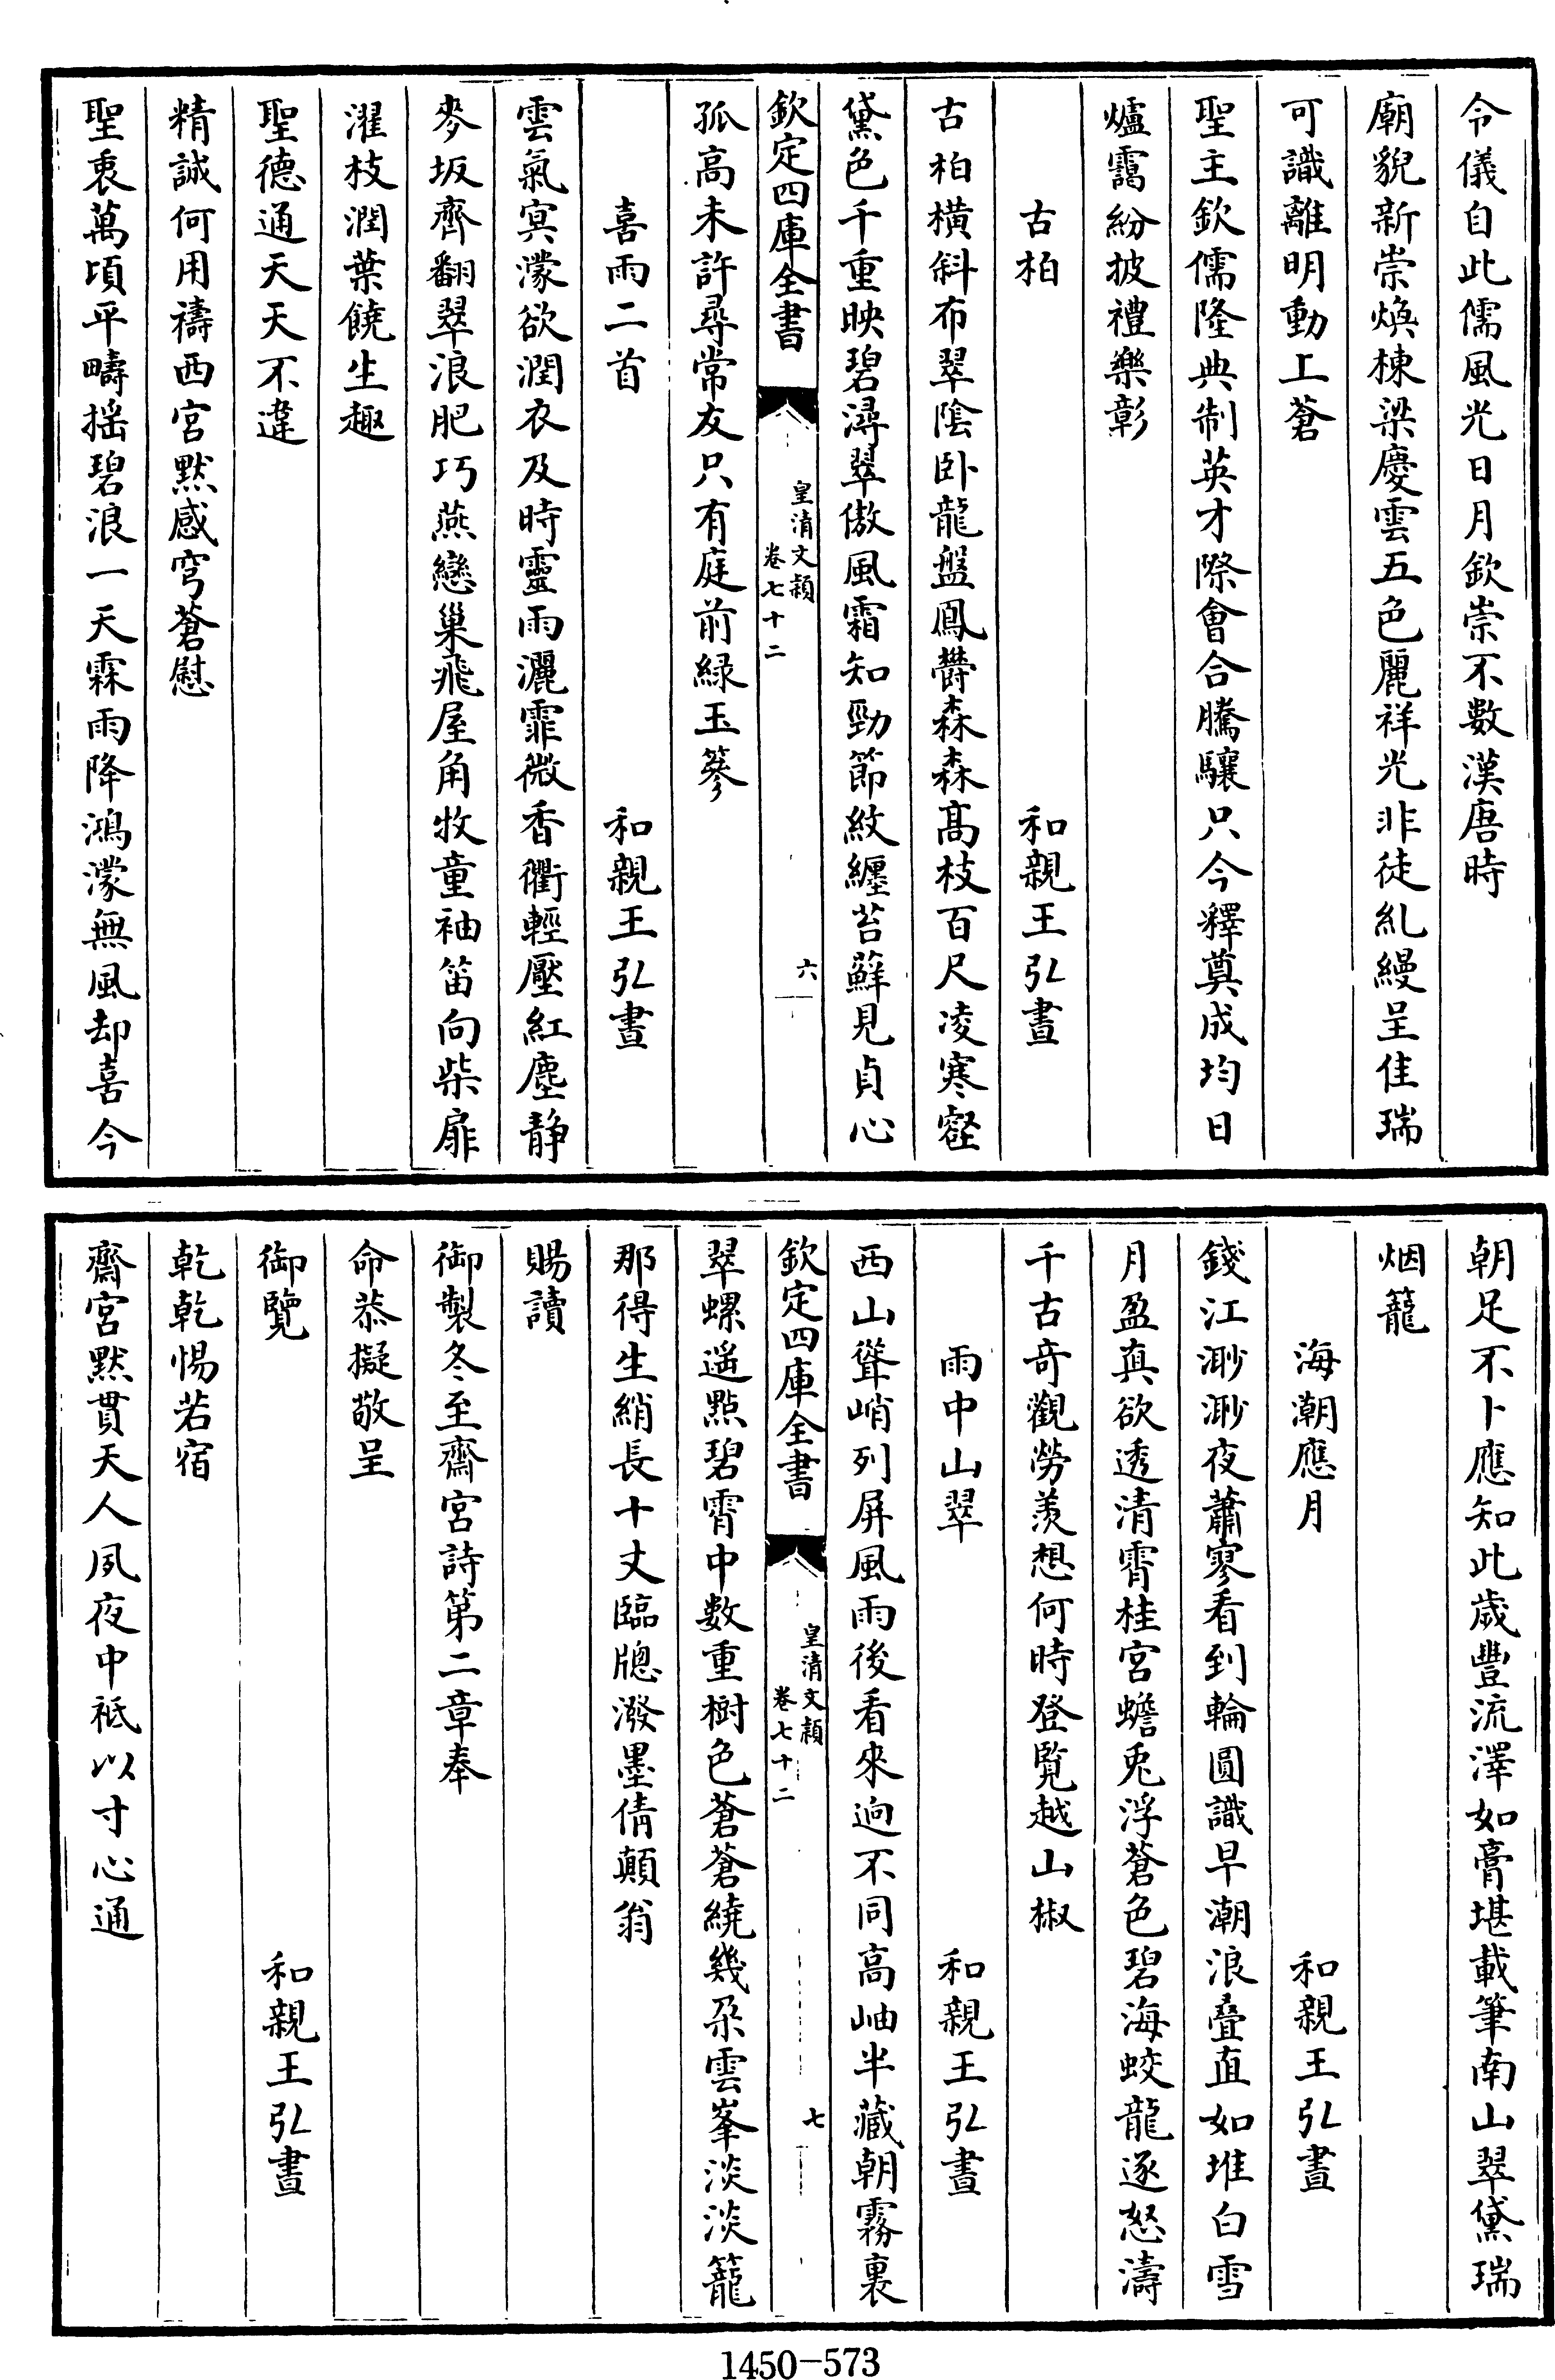 令儀自此儒風光日月欽崇不數漢唐時
廟貌新崇煥棟梁慶雲五色麗祥光非徒糺縵呈佳瑞
可識離明動上蒼
聖主欽儒隆典制英才際會合騰驤只今釋奠成均日
爐靄紛披禮樂彰
古柏
和親王弘晝
古柏橫斜布翠陰卧龍盤鳳欝森森髙枝百尺凌寒壑
黛色千重映碧潯翠傲風霜知勁節紋纏苔蘚見貞心
欽定四庫全書
皇清文穎
卷七十二
六
孤高未許尋常友只有庭前緑玉篸
喜雨二首
和親王弘晝
雲氣㝠濛欲潤衣及時靈雨灑霏微香衢輕壓紅塵靜
麥坂齊翻翠浪肥巧燕戀巢飛屋角牧童袖笛向柴扉
濯枝潤葉饒生趣
聖德通天天不違
精誠何用禱西宮黙感穹蒼慰
聖衷萬頃平疇揺碧浪一天霖雨降鴻濛無風却喜今
朝足不卜應知此歲豐流澤如膏堪載筆南山翠黛瑞
烟籠
海潮應月
和親王弘晝
錢江渺渺夜蕭寥看到輪圓識早潮浪疊直如堆白雪
月盈真欲透清霄桂宮蟾兎浮蒼色碧海蛟龍逐怒濤
千古竒觀勞羨想何時登覧越山椒
雨中山翠
和親王弘晝
西山聳峭列屏風雨後看來逈不同高岫半藏朝霧裏
欽定四庫全書
皇清文穎
卷七十二
七
翠螺遥㸃碧霄中數重樹色蒼蒼繞幾朶雲峯淡淡籠
那得生綃長十丈臨牕潑墨倩顛翁
賜讀
御製冬至齋宮詩第二章奉
命恭擬敬呈
御覽
和親王弘晝
乾乾惕若宿
齋宮黙貫天人夙夜中祗以寸心通
1450-573